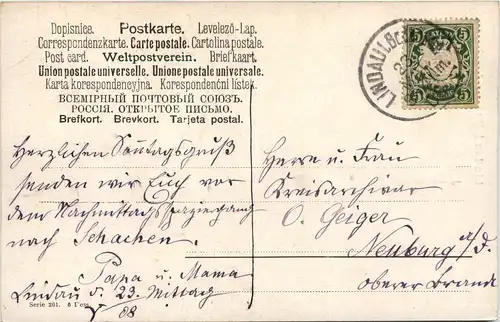 Dopisnice. Postkarte. Levelező-Lap.
Correspondenzkarte. Carte postale. Cartolina postale.
Post card. Weltpostverein. Briefkaart.
Union postale universelle. Unione postale universale.
Karta korespondencyjna. Korespondenční lístek.
ВСЕМІРНЫЙ ПОЧТОВЫЙ СОЮЗЪ.
РОССІЯ. ОТКРЫТОЕ ПИСЬМО.
Brefkort. Brevkort. Tarjeta postal.
LINDAU i. B
5 5
Herzlichen Sonntagsgruß
senden wir Euch vor
dem Nachmittagsspaziergang
nach Schachen.
Papa u. Mama
Lindau d. 23. Mittag
08
Serie 261.
Herrn u. Frau
Kreisarchivar
O. Geiger
Neuburg a/D.
oberer Brand